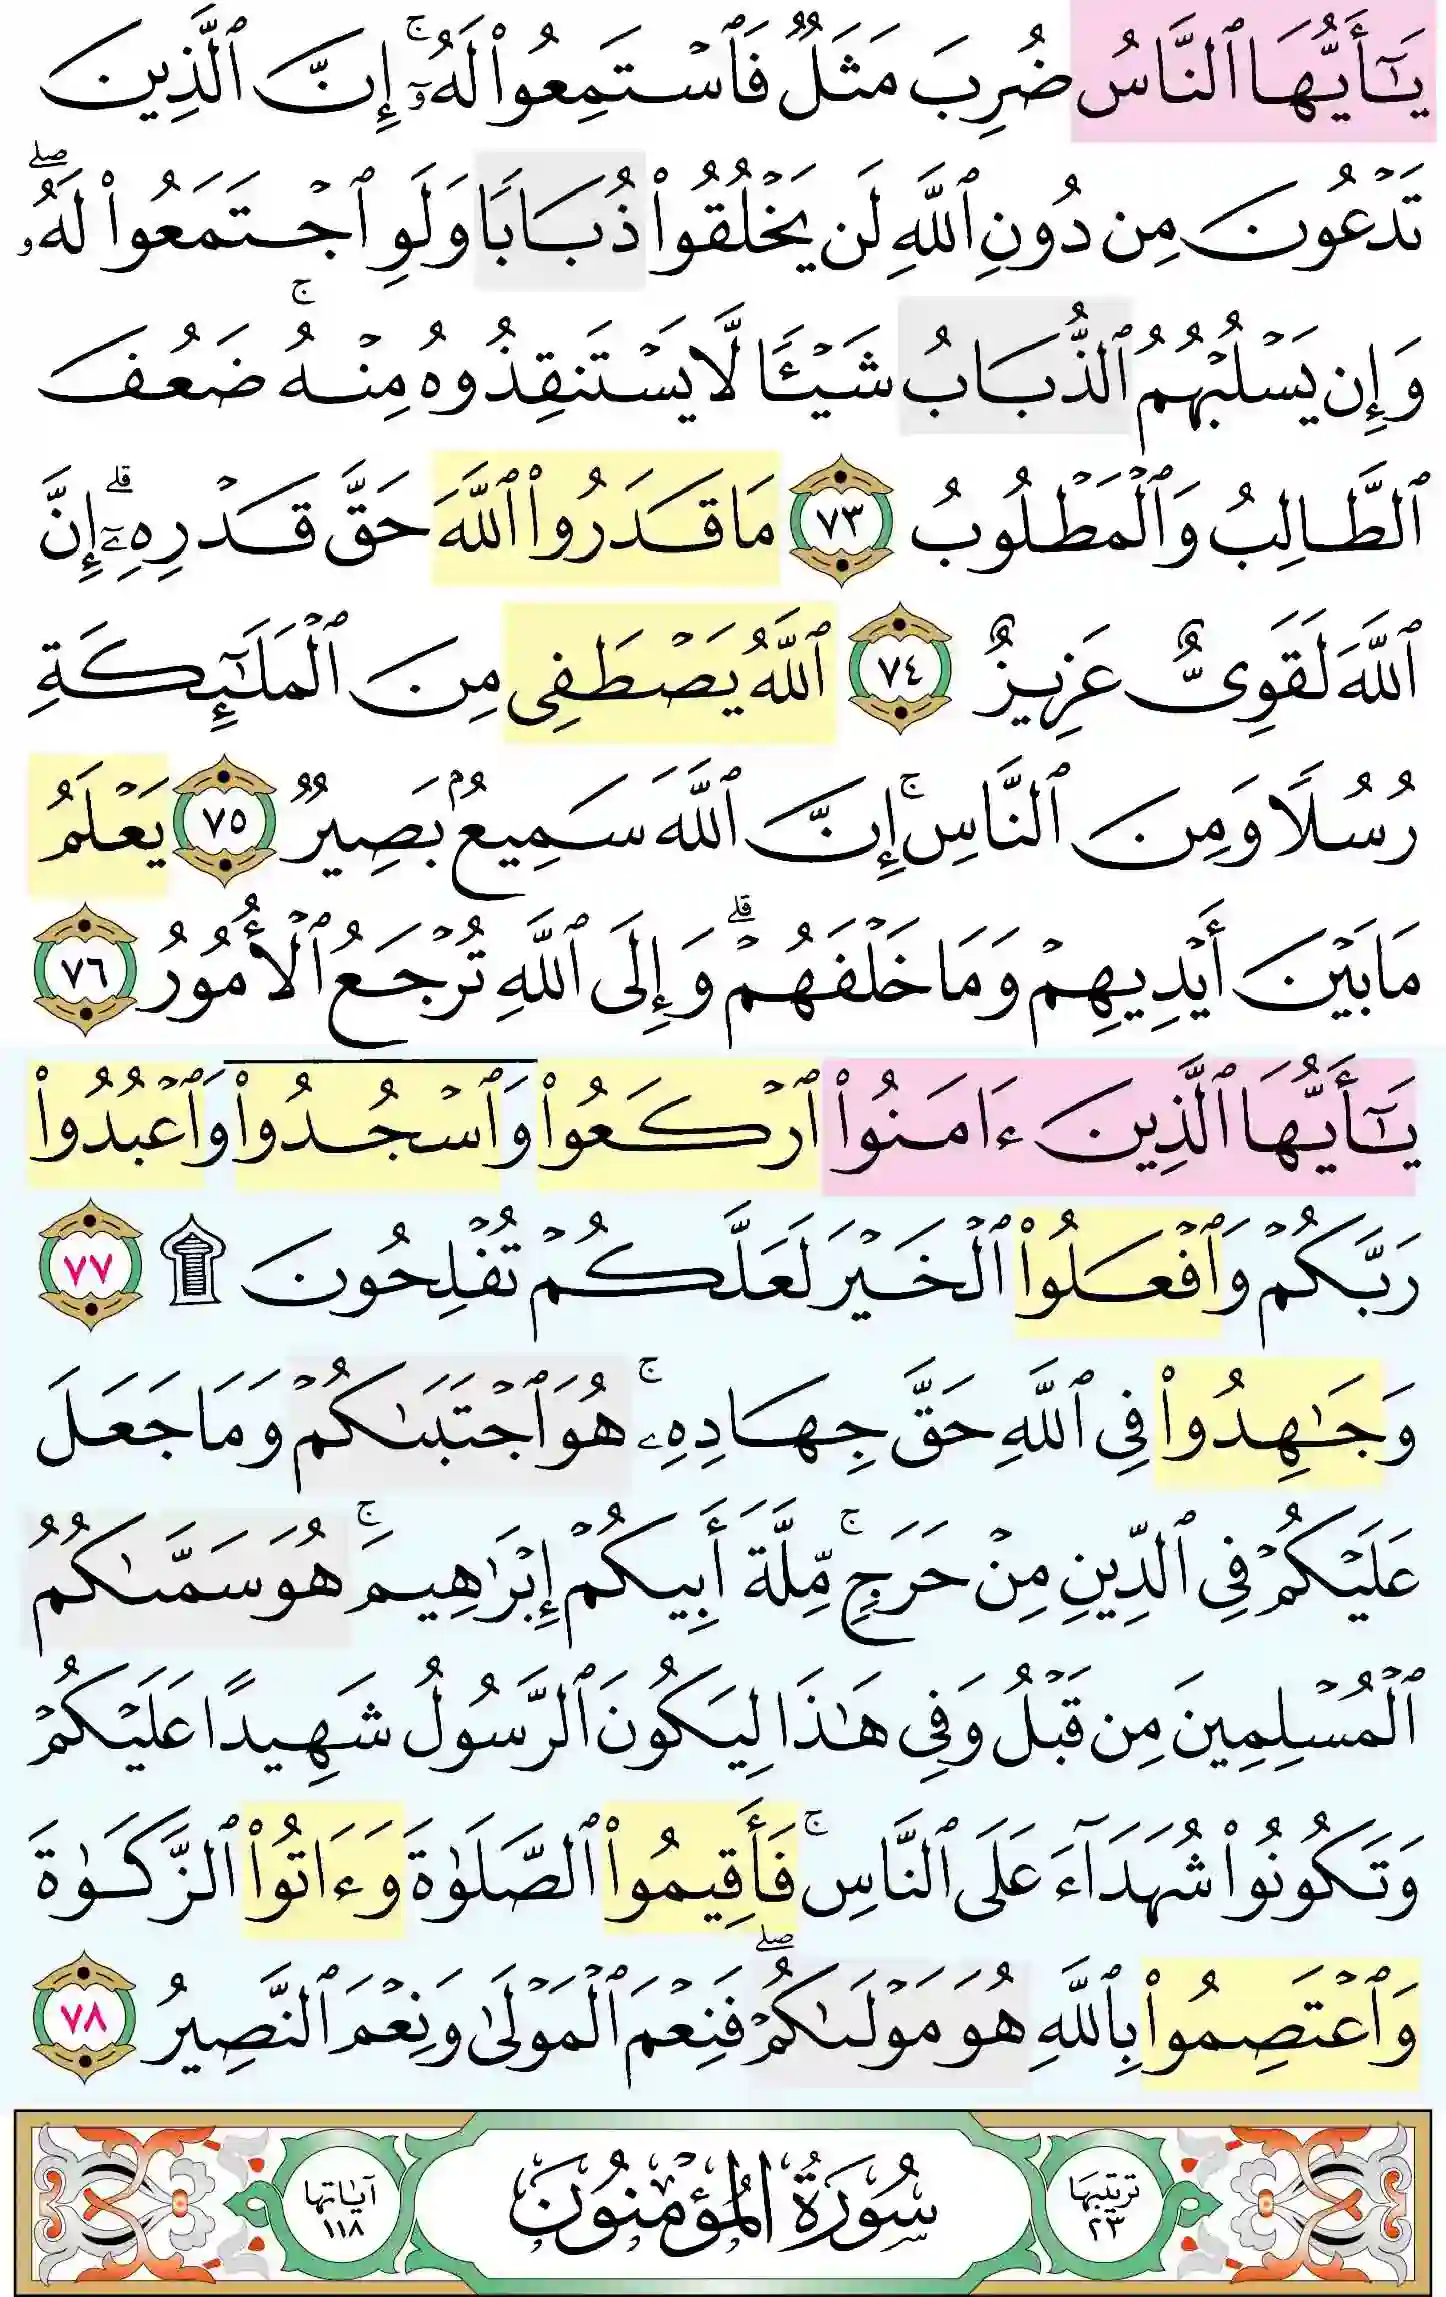 يَـٰٓأَيُّهَا ٱلنَّاسُ ضُرِبَ مَثَلٌ فَٱسْتَمِعُوا۟ لَهُۥٓ ۚ إِنَّ ٱلَّذِينَ
تَدْعُونَ مِن دُونِ ٱللَّهِ لَن يَخْلُقُوا۟ ذُبَابًا وَلَوِ ٱجْتَمَعُوا۟ لَهُۥ ۖ
وَإِن يَسْلُبْهُمُ ٱلذُّبَابُ شَيْـًٔا لَّا يَسْتَنقِذُوهُ مِنْهُ ۚ ضَعُفَ
ٱلطَّالِبُ وَٱلْمَطْلُوبُ ٧٣ مَا قَدَرُوا۟ ٱللَّهَ حَقَّ قَدْرِهِۦٓ ۗ إِنَّ
ٱللَّهَ لَقَوِىٌّ عَزِيزٌ ٧٤ ٱللَّهُ يَصْطَفِى مِنَ ٱلْمَلَـٰٓئِكَةِ
رُسُلًا وَمِنَ ٱلنَّاسِ ۚ إِنَّ ٱللَّهَ سَمِيعٌۢ بَصِيرٌ ٧٥ يَعْلَمُ
مَا بَيْنَ أَيْدِيهِمْ وَمَا خَلْفَهُمْ ۗ وَإِلَى ٱللَّهِ تُرْجَعُ ٱلْأُمُورُ ٧٦
يَـٰٓأَيُّهَا ٱلَّذِينَ ءَامَنُوا۟ ٱرْكَعُوا۟ وَٱسْجُدُوا۟ وَٱعْبُدُوا۟
رَبَّكُمْ وَٱفْعَلُوا۟ ٱلْخَيْرَ لَعَلَّكُمْ تُفْلِحُونَ ۩ ٧٧
وَجَـٰهِدُوا۟ فِى ٱللَّهِ حَقَّ جِهَادِهِۦ ۚ هُوَ ٱجْتَبَىٰكُمْ وَمَا جَعَلَ
عَلَيْكُمْ فِى ٱلدِّينِ مِنْ حَرَجٍ ۚ مِّلَّةَ أَبِيكُمْ إِبْرَٰهِيمَ ۚ هُوَ سَمَّىٰكُمُ
ٱلْمُسْلِمِينَ مِن قَبْلُ وَفِى هَـٰذَا لِيَكُونَ ٱلرَّسُولُ شَهِيدًا عَلَيْكُمْ
وَتَكُونُوا۟ شُهَدَآءَ عَلَى ٱلنَّاسِ ۚ فَأَقِيمُوا۟ ٱلصَّلَوٰةَ وَءَاتُوا۟ ٱلزَّكَوٰةَ
وَٱعْتَصِمُوا۟ بِٱللَّهِ هُوَ مَوْلَىٰكُمْ ۖ فَنِعْمَ ٱلْمَوْلَىٰ وَنِعْمَ ٱلنَّصِيرُ ٧٨
ترتيبها ٢٣ سُورَةُ الْمُؤْمِنُونَ آياتها ١١٨